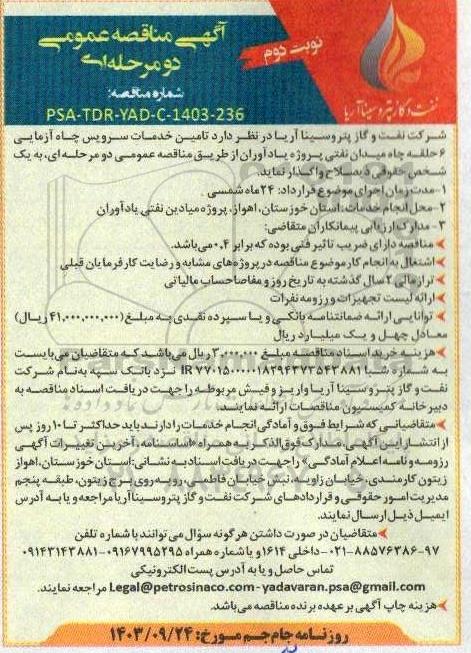 نفت و گاز پترو سینا آریا
نوبت دوم
آگهی مناقصه عمومی
دو مرحله‌ای
شماره مناقصه:
PSA-TDR-YAD-C-1403-236
شرکت نفت و گاز پترو سینا آریا در نظر دارد تامین خدمات سرویس چاه آزمایی
۶ حلقه چاه میدان نفتی پروژه یادآوران از طریق مناقصه عمومی دو مرحله‌ای، به یک
شخص حقوقی ذیصلاح واگذار نماید.
۱-مدت زمان اجرای موضوع قرارداد: ۲۴ ماه شمسی
۲-محل انجام خدمات: استان خوزستان، اهواز، پروژه میادین نفتی یادآوران
۳- مدارک ارزیابی پیمانکاران متقاضی:
مناقصه دارای ضریب تاثیر فنی بوده که برابر ۰.۴ می‌باشد.
اشتغال به انجام کار موضوع مناقصه در پروژه‌های مشابه و رضایت کارفرمایان قبلی
ترازمالی ۲ سال گذشته به تاریخ روز و مفاصا حساب مالیاتی
ارائه لیست تجهیزات و رزومه نفرات
توانایی ارائه ضمانتنامه بانکی و یا سپرده نقدی به مبلغ (۴۱,۰۰۰,۰۰۰,۰۰۰ ریال)
معادل چهل و یک میلیارد ریال
هزینه خرید اسناد مناقصه مبلغ ۳,۰۰۰,۰۰۰ ریال می‌باشد که متقاضیان می‌بایست
به شماره شبا IR ۷۷۰۱۵۰۰۰۰۰۱۸۲۹۴۳۷۳۵۴۳۸۸۱ نزد بانک سپه به نام شرکت
نفت و گاز پترو سینا آریا واریز و فیش مربوطه را جهت دریافت اسناد مناقصه به
دبیرخانه کمیسیون مناقصات ارائه نمایند.
متقاضیانی که شرایط فوق و آمادگی انجام خدمات را دارند باید حداکثر تا ۱۰ روز پس
از انتشار این آگهی، مدارک فوق الذکر به همراه «اساسنامه، آخرین تغییرات آگهی
رزومه و نامه اعلام آمادگی» را جهت دریافت اسناد به نشانی: استان خوزستان، اهواز
زیتون کارمندی، خیابان زاویه، نبش خیابان فاطمی، روبه روی برج زیتون، طبقه پنجم
مدیریت امور حقوقی و قراردادهای شرکت نفت و گاز پترو سینا آریا مراجعه و یا به آدرس
ایمیل ذیل ارسال نمایند.
متقاضیان در صورت داشتن هر گونه سؤال می‌توانند با شماره تلفن
۰۲۱-۸۸۵۷۶۳۸۶-۹۷ داخلی ۱۶۱۴ و یا شماره همراه ۰۹۱۶۷۹۹۵۲۹۵-۰۹۱۴۳۱۴۳۸۸۱
تماس حاصل و یا به آدرس پست الکترونیکی
Legal@petrosinaco.com-yadavaran.psa@gmail.com مراجعه نمایند.
هزینه چاپ آگهی بر عهده برنده مناقصه می‌باشد.
روزنامه جام جم مورخ: ۱۴۰۳/۰۹/۲۴